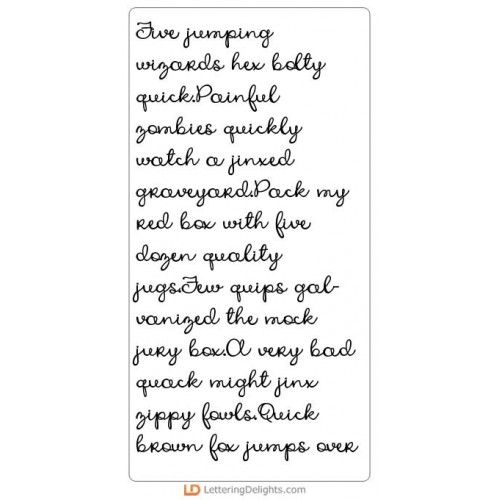 Five jumping
wizards hex bolty
quick.Painful
zombies quickly
watch a jinxed
graveyard.Pack my
red box with five
dozen quality
jugs.Few quips gal-
vanized the mock
jury box.A very bad
quack might jinx
zippy fowls.Quick
brown fox jumps over
LD LetteringDelights.com